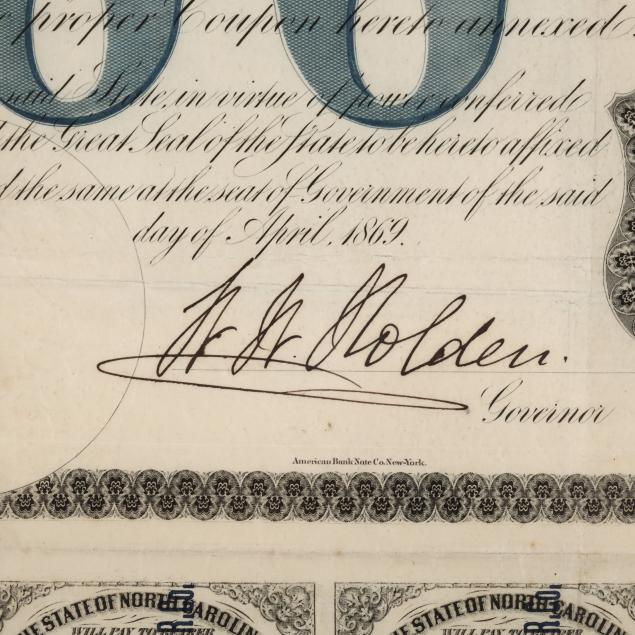 proper Coupon hereto annexed
said State, in virtue of power conferred
the Great Seal of the State to be hereto affixed
the same at the seat of Government of the said
day of April, 1869.
W. W. Holden.
Governor
American Bank Note Co. New-York.
THE STATE OF NORTH CAROLINA
HE STATE OF NORTH CAROLIN
WILL PAY TO BEARER
WILL PAY TO BEARER